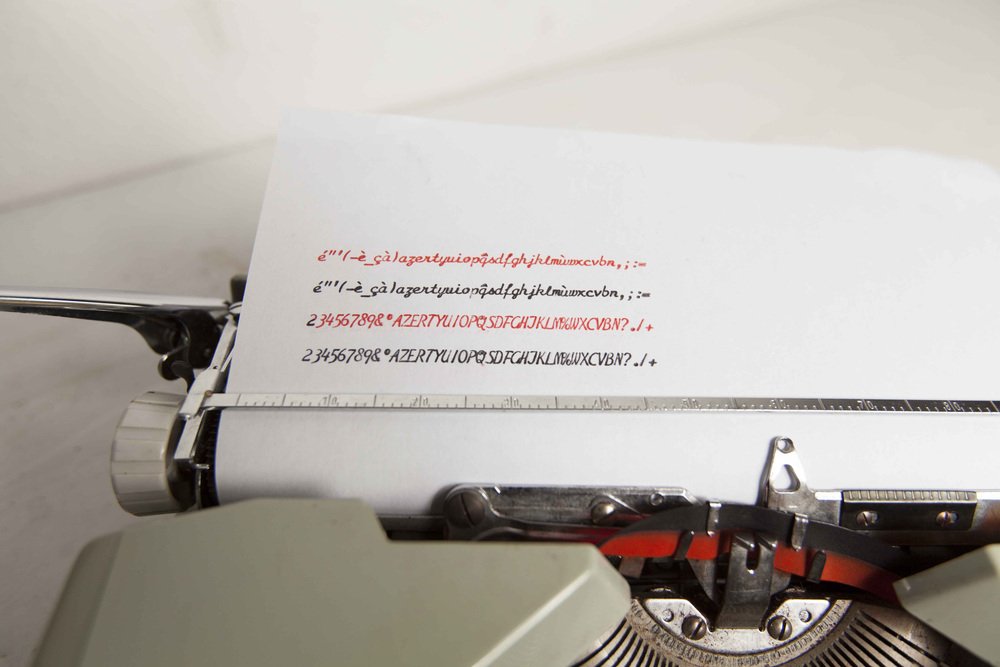 é"'(-è_çà)azertyuiop^qsdfghjklmùwxcvbn,;:=
é"'(-è_çà)azertyuiop^qsdfghjklmùwxcvbn,;:=
23456789&°AZERTYUIOP¨QSDFGHJKLM%WXCVBN?./+
23456789&°AZERTYUIOP¨QSDFGHJKLM%WXCVBN?./+
10 20 30 40 50 70 80